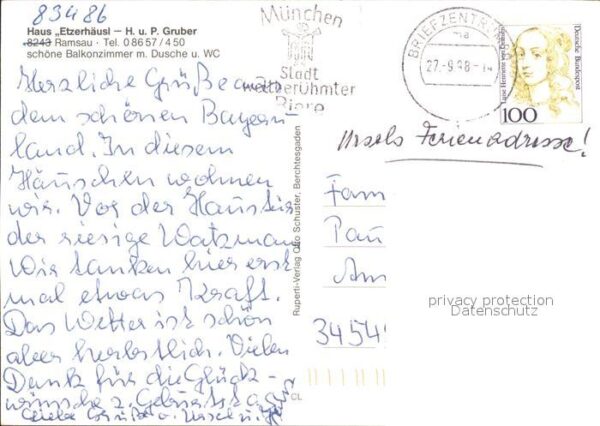 83486
Haus „Etzerhäusl — H. u. P. Gruber
8243 Ramsau · Tel. 0 86 57 / 4 50
schöne Balkonzimmer m. Dusche u. WC
Herzliche Grüße aus
dem schönen Bayern-
land. In diesem
Häuschen wohnen
wir. Vor der Haustür
der riesige Watzmann
Wir tanken hier erst
mal etwas Kraft.
Das Wetter ist schön
aber herbstlich. Vielen
Dank für die Glück-
wünsche z. Geburtstag
Liebe Grüße v.
München
Stadt
weltberühmter
Biere
BRIEFZENTRUM
27.-9.98.-14
Deutsche Bundespost
100
Ursels Ferienadresse!
Ruperti-Verlag Otto Schuster, Berchtesgaden
Fam
Pau
Am
34549
CL
privacy protection
Datenschutz